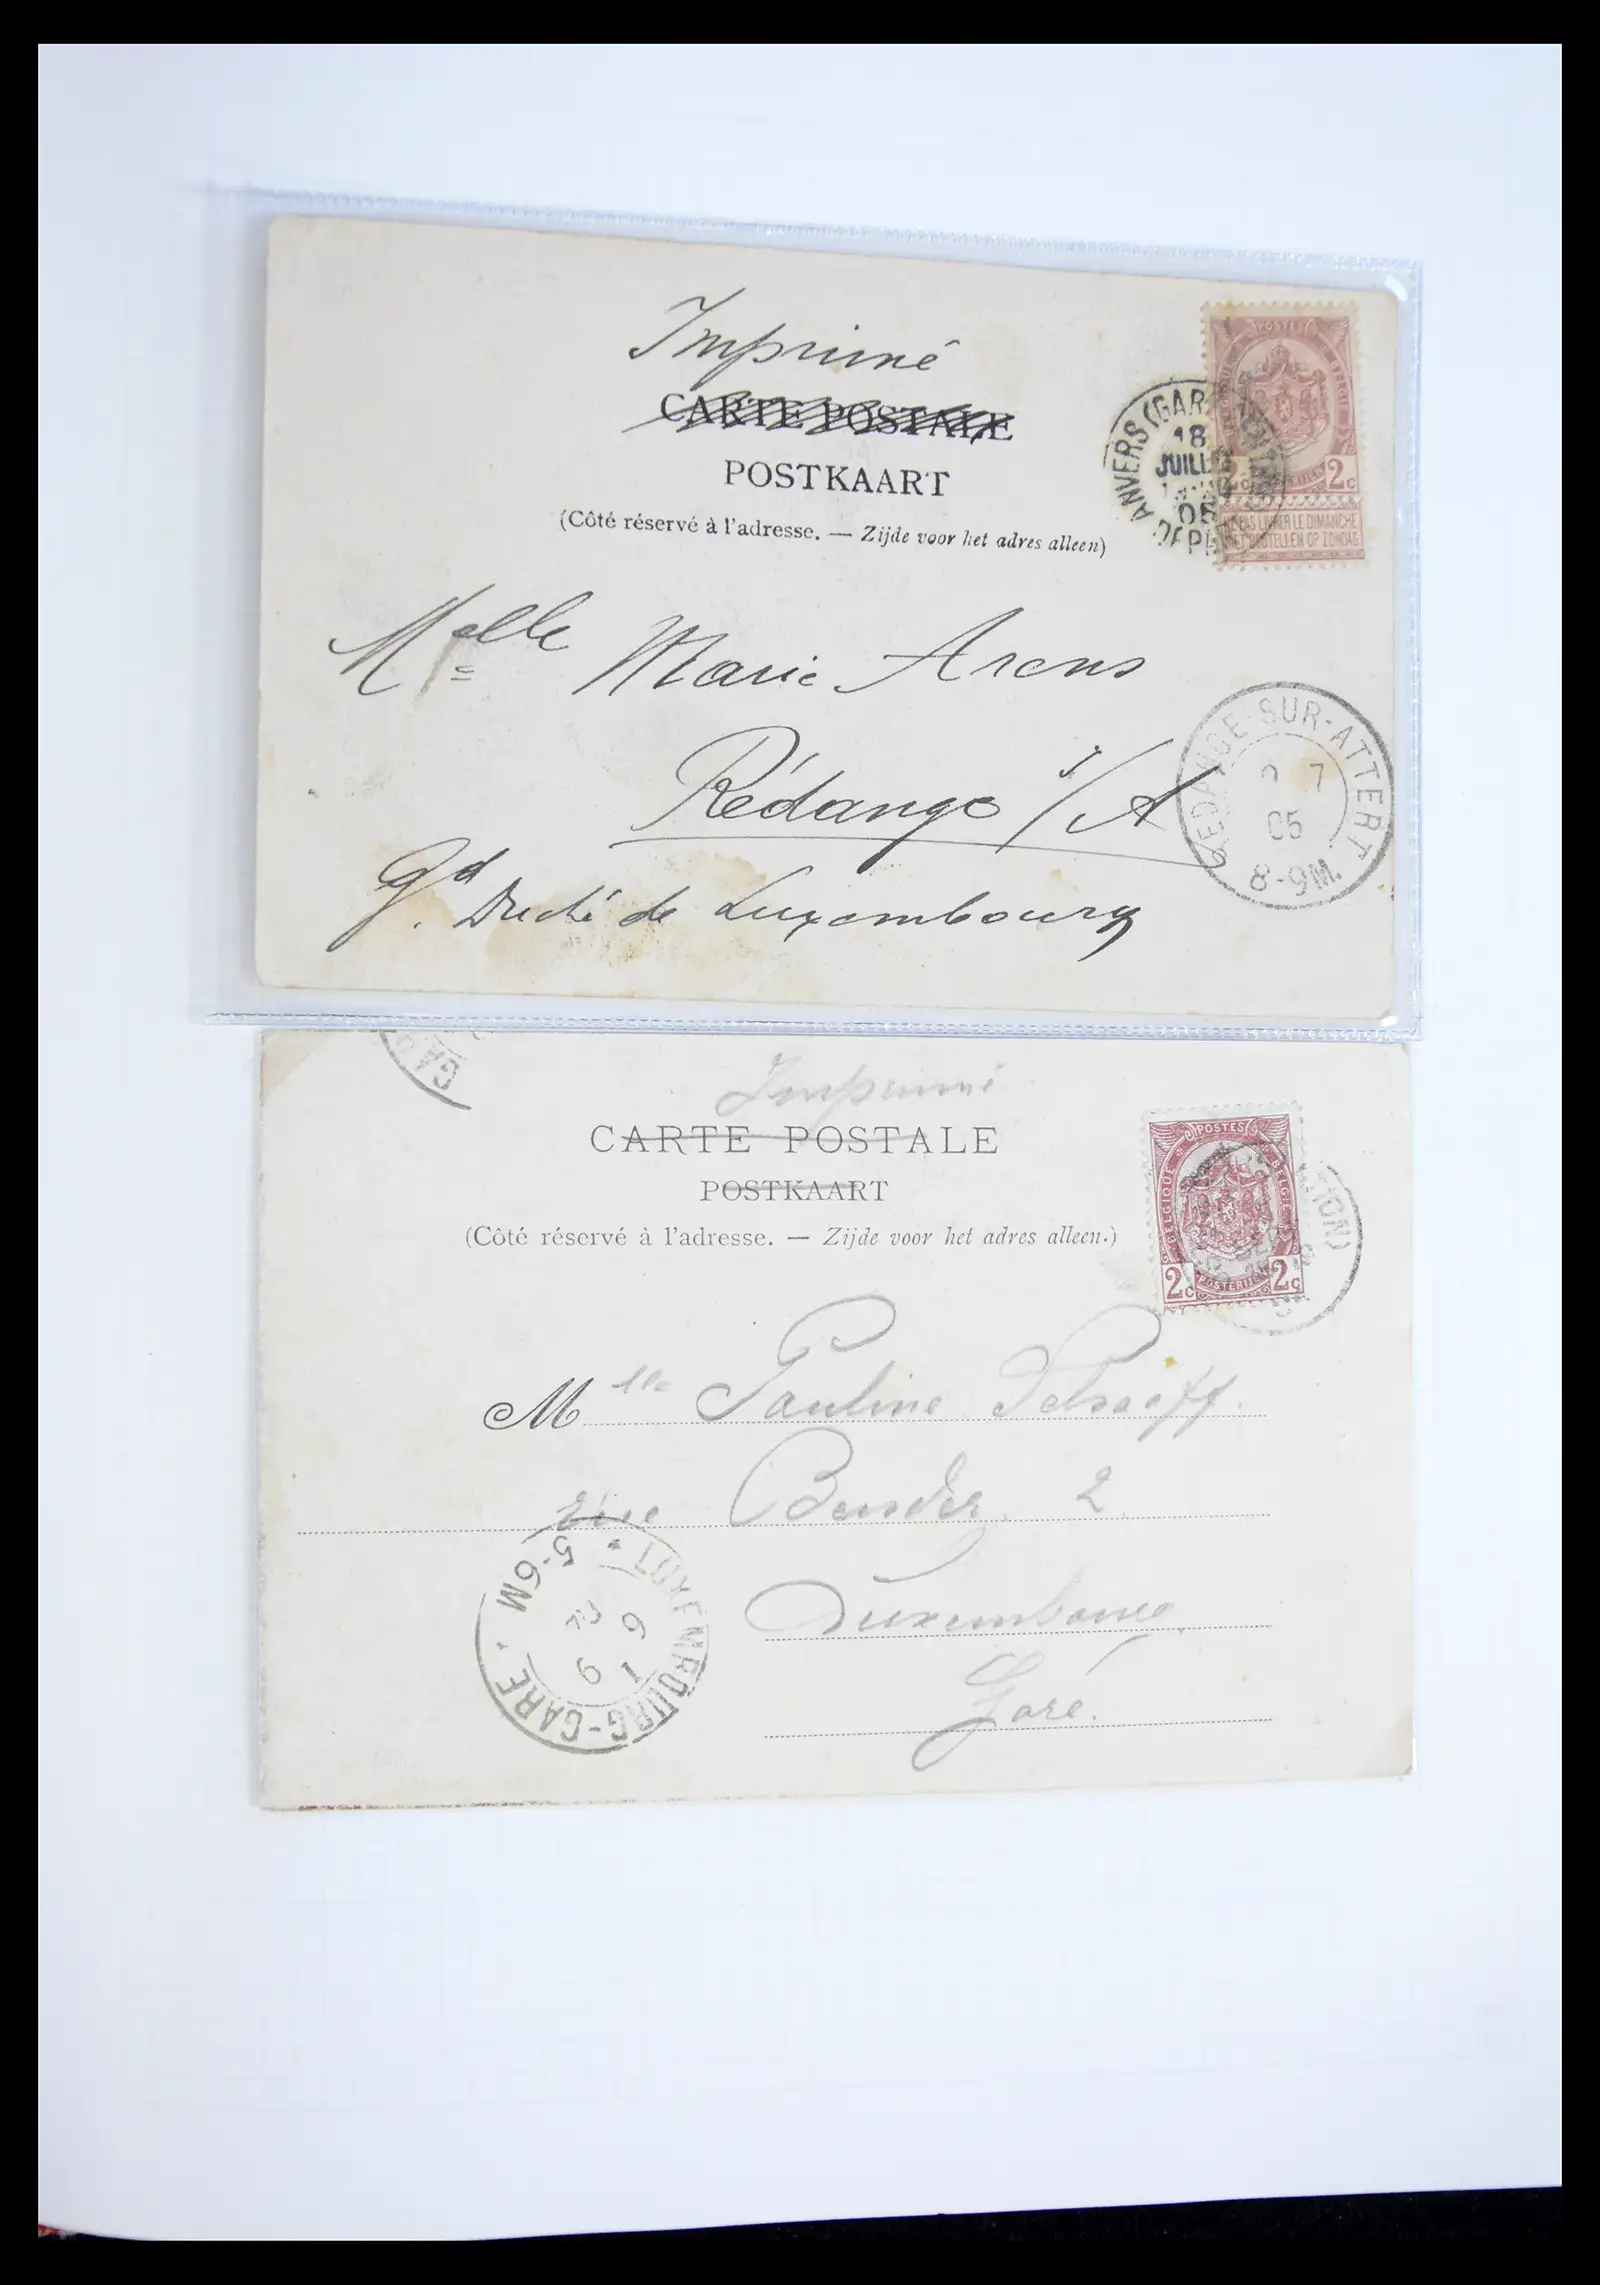 Imprimé
CARTE POSTALE
POSTKAART
(Côté réservé à l'adresse. — Zijde voor het adres alleen)
POSTES
2c 2c
NE PAS LIVRER LE DIMANCHE
NIET BESTELLEN OP ZONDAG
ANVERS (GARE CENTRALE)
18
JUILLET
05
DEPART
Melle Marie Arens
Rédange s/A
Gd. Duché de Luxembourg
REDANGE-SUR-ATTERT
7
05
8-9M.
GA
Imprimé
CARTE POSTALE
POSTKAART
(Côté réservé à l'adresse. — Zijde voor het adres alleen.)
POSTES
BELGIQUE BELGIE
2c POSTERIJEN 2c
TION)
Mlle Pauline
rue Bender 2.
Luxembourg
Gare.
LUXEMBOURG-GARE
5-6M
1 9